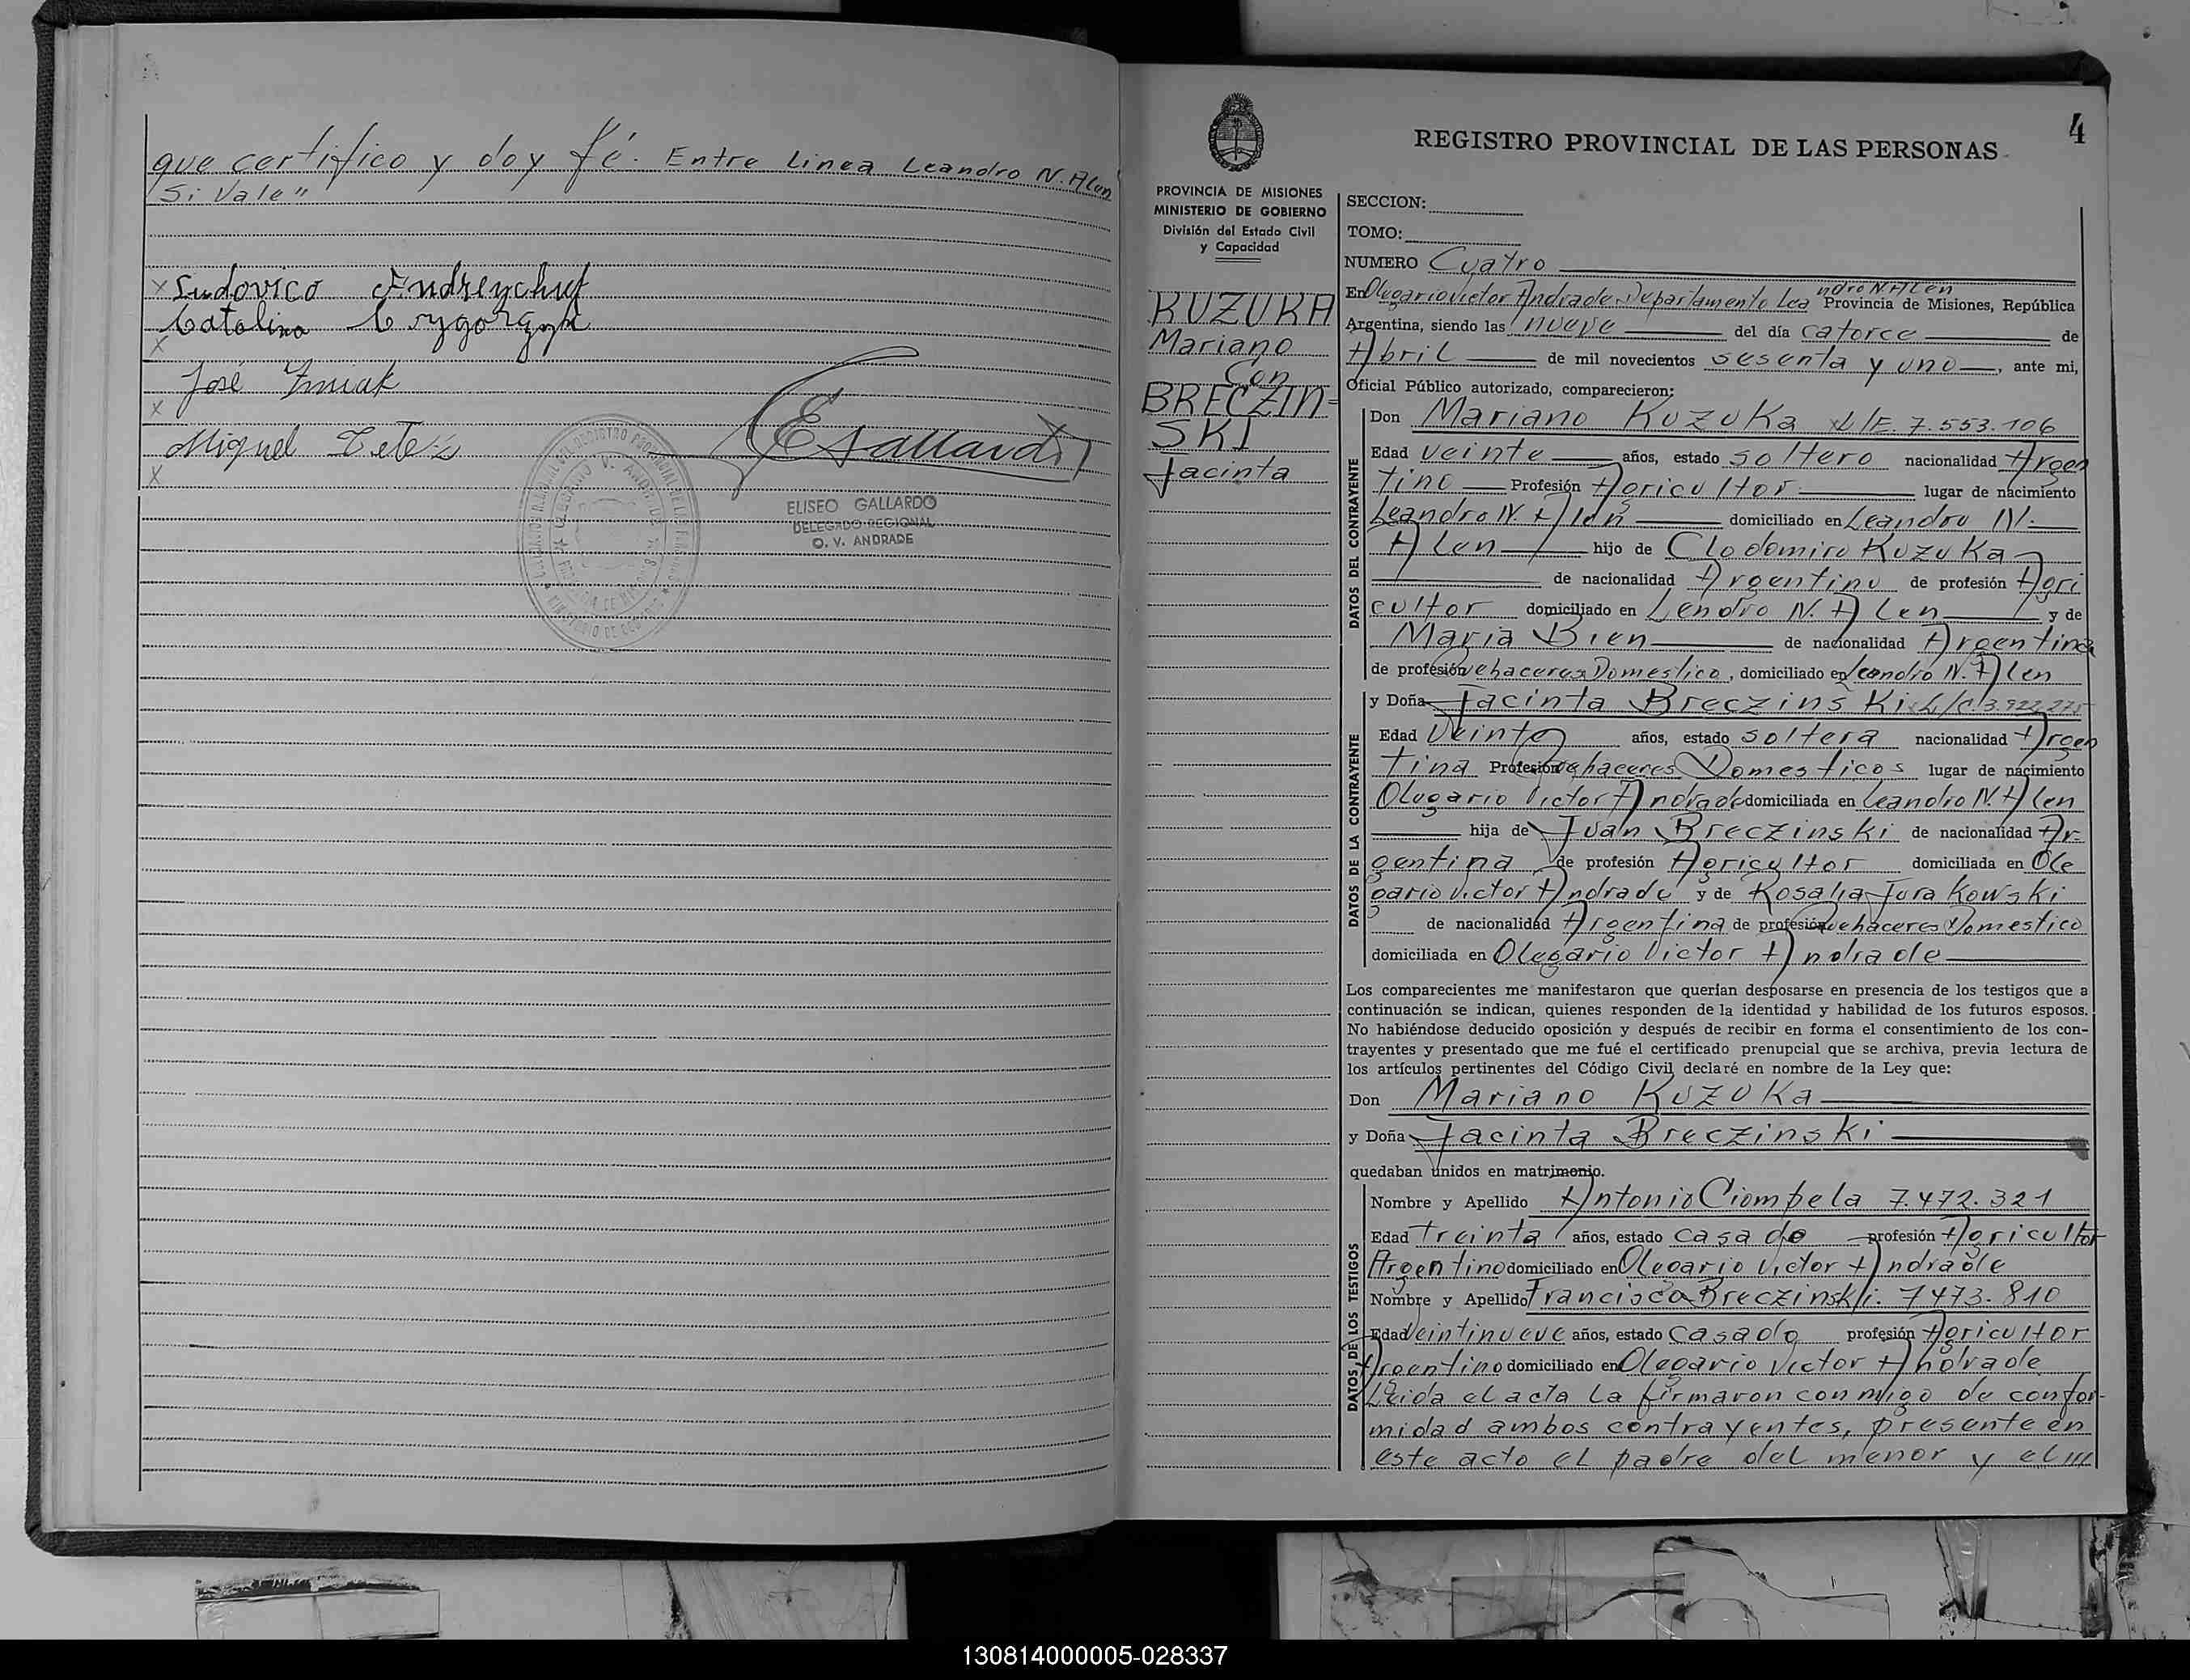 que certifico y doy fé. Entre Linea Leandro N. Alen
Si Vale"
x Ludovico Andreychuk
Catalina
x
José Zmiak
x
Miguel
x
EGallardo
ELISEO GALLARDO
DELEGADO REGIONAL
O. V. ANDRADE
4
REGISTRO PROVINCIAL DE LAS PERSONAS
PROVINCIA DE MISIONES
MINISTERIO DE GOBIERNO
División del Estado Civil
y Capacidad
KUZUKA
Mariano
Con
BRECZIN-
SKI
Jacinta
SECCION:
TOMO:
NUMERO Cuatro
ndro N. Alen
En Olegario Victor Andrade Departamento Lea Provincia de Misiones, República
Argentina, siendo las nueve del día catorce de
Abril de mil novecientos sesenta y uno, ante mi,
Oficial Público autorizado, comparecieron:
DATOS DEL CONTRAYENTE
Don Mariano Kuzuka L/E. 7.553.106
Edad veinte años, estado soltero nacionalidad Argen
tino Profesión Agricultor lugar de nacimiento
Leandro N. Alen domiciliado en Leandro N.
Alen hijo de Clodomiro Kuzuka
de nacionalidad Argentino de profesión Agri
cultor domiciliado en Lendro N. Alen y de
Maria Bien de nacionalidad Argentina
de profesión Quehaceres Domestico, domiciliado en Leandro N. Alen
DATOS DE LA CONTRAYENTE
y Doña Jacinta Breczinski L/C 3.922.275
Edad Veinte años, estado soltera nacionalidad Argen
tina Profesión Quehaceres Domesticos lugar de nacimiento
Olegario Victor Andrade domiciliada en Leandro N. Alen
hija de Juan Breczinski de nacionalidad Ar-
gentina de profesión Agricultor domiciliada en Ole
gario Victor Andrade y de Rosalia Jurakowski
de nacionalidad Argentina de profesión Quehaceres Domestico
domiciliada en Olegario Victor Andrade
Los comparecientes me manifestaron que querían desposarse en presencia de los testigos que a
continuación se indican, quienes responden de la identidad y habilidad de los futuros esposos.
No habiéndose deducido oposición y después de recibir en forma el consentimiento de los con-
trayentes y presentado que me fué el certificado prenupcial que se archiva, previa lectura de
los artículos pertinentes del Código Civil declaré en nombre de la Ley que:
Don Mariano Kuzuka
y Doña Jacinta Breczinski
quedaban unidos en matrimonio.
DATOS DE LOS TESTIGOS
Nombre y Apellido Antonio Ciompela 7.472.321
Edad Treinta años, estado casado profesión Agricultor
Argentino domiciliado en Olegario Victor Andrade
Nombre y Apellido Francisco Breczinski. 7473.810
Edad Veintinueve años, estado Casado profesión Agricultor
Argentino domiciliado en Olegario Victor Andrade
Leida el acta la firmaron conmigo de confor-
midad ambos contrayentes, presente en
este acto el padre del menor y el
130814000005-028337